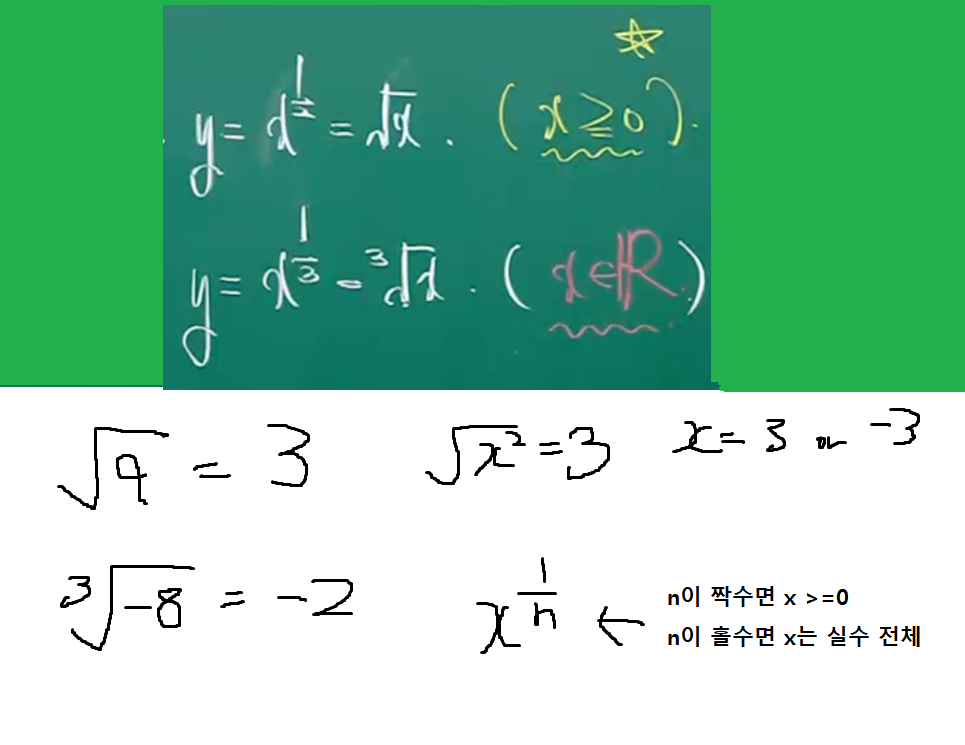 y = x^{1/2} = √x . ( x ≧ 0 ).
y = x^{1/3} = ³√x . ( x ∈ ℝ. )
√9 = 3 √x² = 3 x = 3 or -3
³√-8 = -2 x^{1/n} ← n이 짝수면 x >=0
n이 홀수면 x는 실수 전체